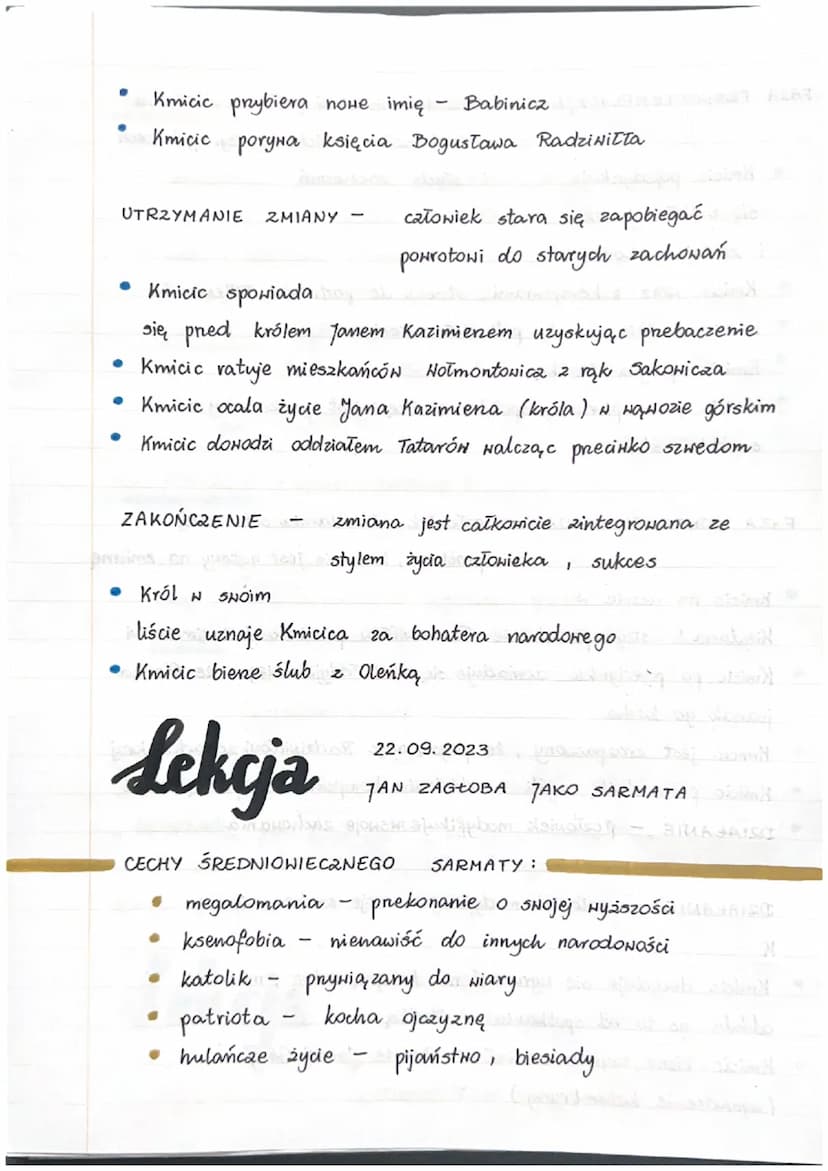 • Kmicic przybiera nowe imię – Babinicz
• Kmicic porywa księcia Bogusława Radziwiłła
UTRZYMANIE ZMIANY – człowiek stara się zapobiegać
powrotowi do starych zachowań
• Kmicic spowiada
się przed królem Janem Kazimierzem uzyskując przebaczenie
• Kmicic ratuje mieszkańców Wołmontowicz z rąk Sakowicza
• Kmicic ocala życie Jana Kazimierza (króla) w wąwozie górskim
• Kmicic dowodzi oddziałem Tatarów walcząc przeciwko szwedom
ZAKOŃCZENIE – zmiana jest całkowicie zintegrowana ze
stylem życia człowieka, sukces
• Król w swoim
liście uznaje Kmicica za bohatera narodowego
• Kmicic bierze ślub z Oleńką
Lekcja 22.09.2023
JAN ZAGŁOBA JAKO SARMATA
CECHY ŚREDNIOWIECZNEGO SARMATY:
• megalomania – przekonanie o swojej wyższości
• ksenofobia – nienawiść do innych narodowości
• katolik – przywiązany do wiary
• patriota – kocha ojczyznę
• hulańcze życie – pijaństwo, biesiady